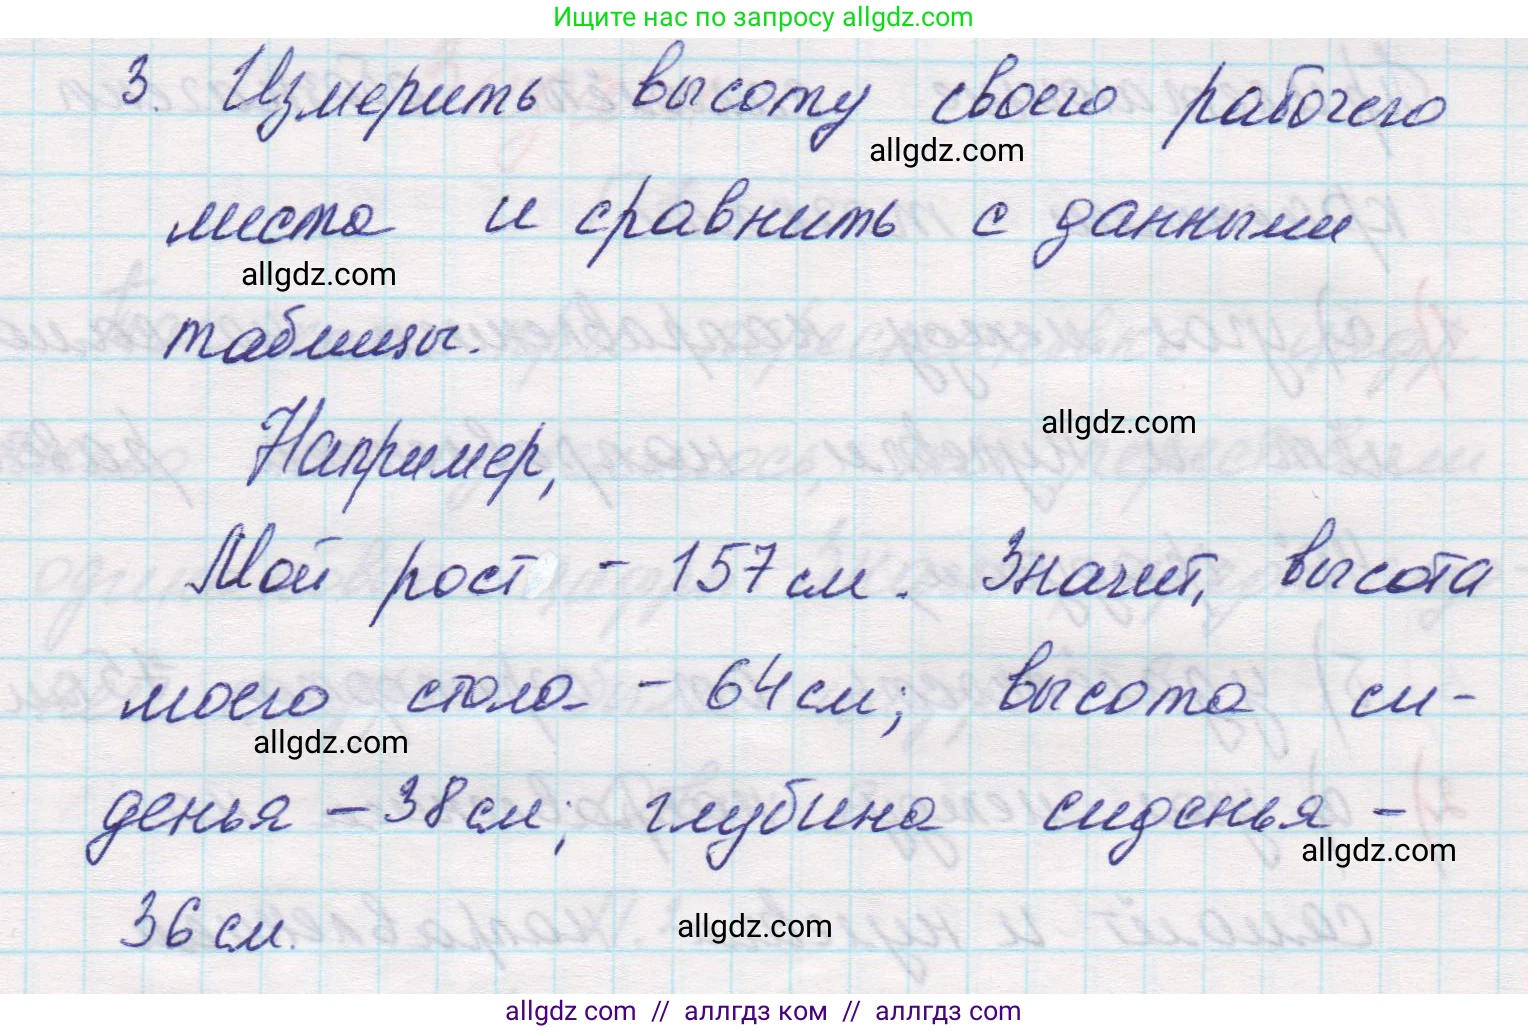 Ищите нас по запросу allgdz.com
3. Измерить высоту своего рабочего
allgdz.com
места и сравнить с данными
allgdz.com
таблицы.
allgdz.com
Например,
Мой рост - 157 см. Значит, высота
моего стола - 64 см; высота си-
allgdz.com
денья - 38 см; глубина сиденья -
allgdz.com
36 см.
allgdz.com
allgdz com // аллгдз ком // аллгдз com